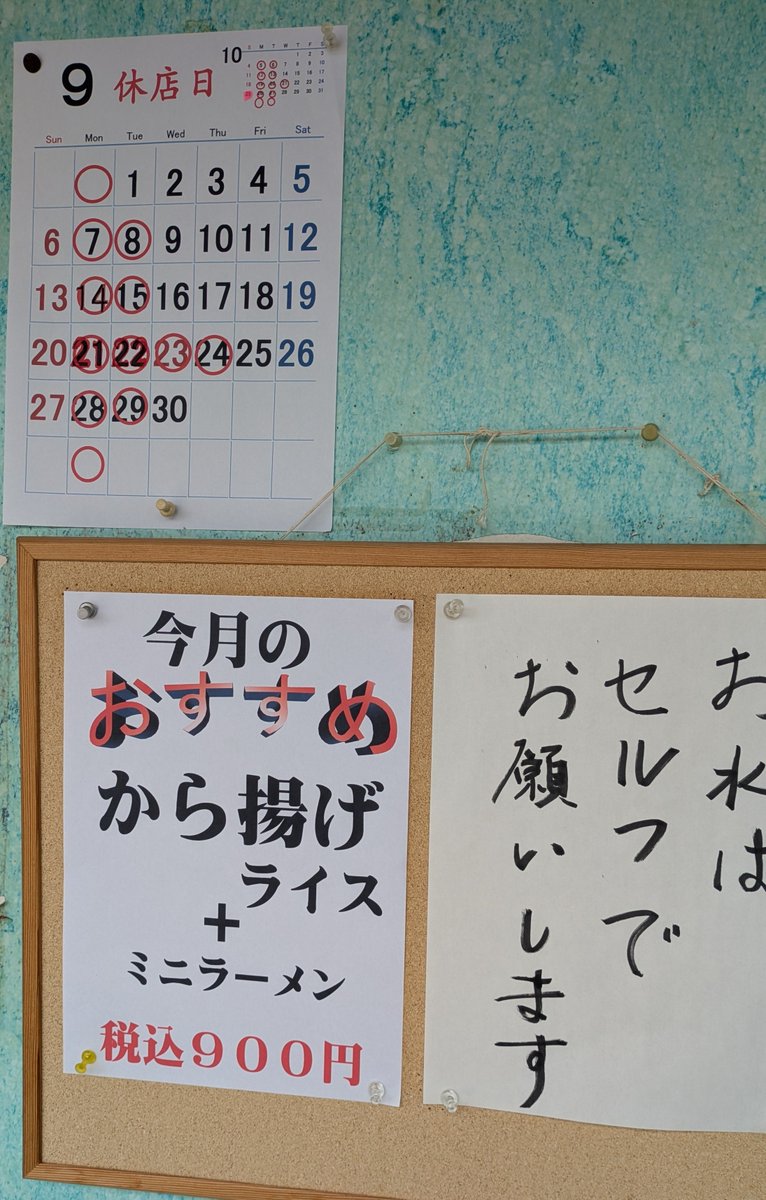 9 休店日
Sun Mon Tue Wed Thu Fri Sat
1 2 3 4 5
6 7 8 9 10 11 12
13 14 15 16 17 18 19
20 21 22 23 24 25 26
27 28 29 30
10
今月の
おすすめ
から揚げ
ライス
+
ミニラーメン
税込900円
お水は
セルフで
お願いします